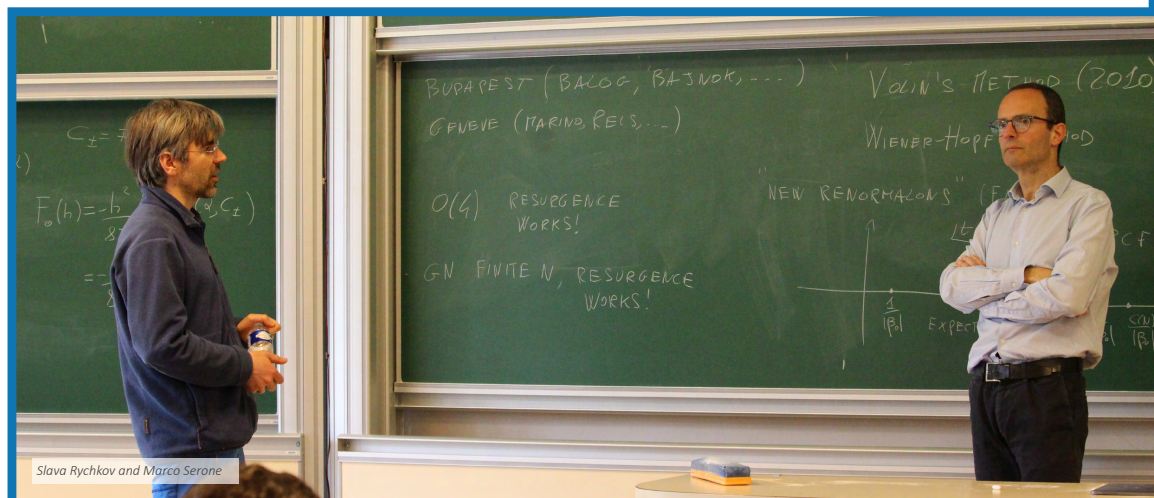 C± =
F₀(h)=-h² , C±)
BUDAPEST (BALOG, BAJNOK, ....)
GENEVE (MARINO, REIS, ...)
O(4) RESURGENCE
WORKS!
- GN FINITE N, RESURGENCE
WORKS!
VOLIN'S METHOD (2010)
WIENER-HOPF
"NEW RENORMALONS"
1
|β₀|
EXPECT
Slava Rychkov and Marco Serone